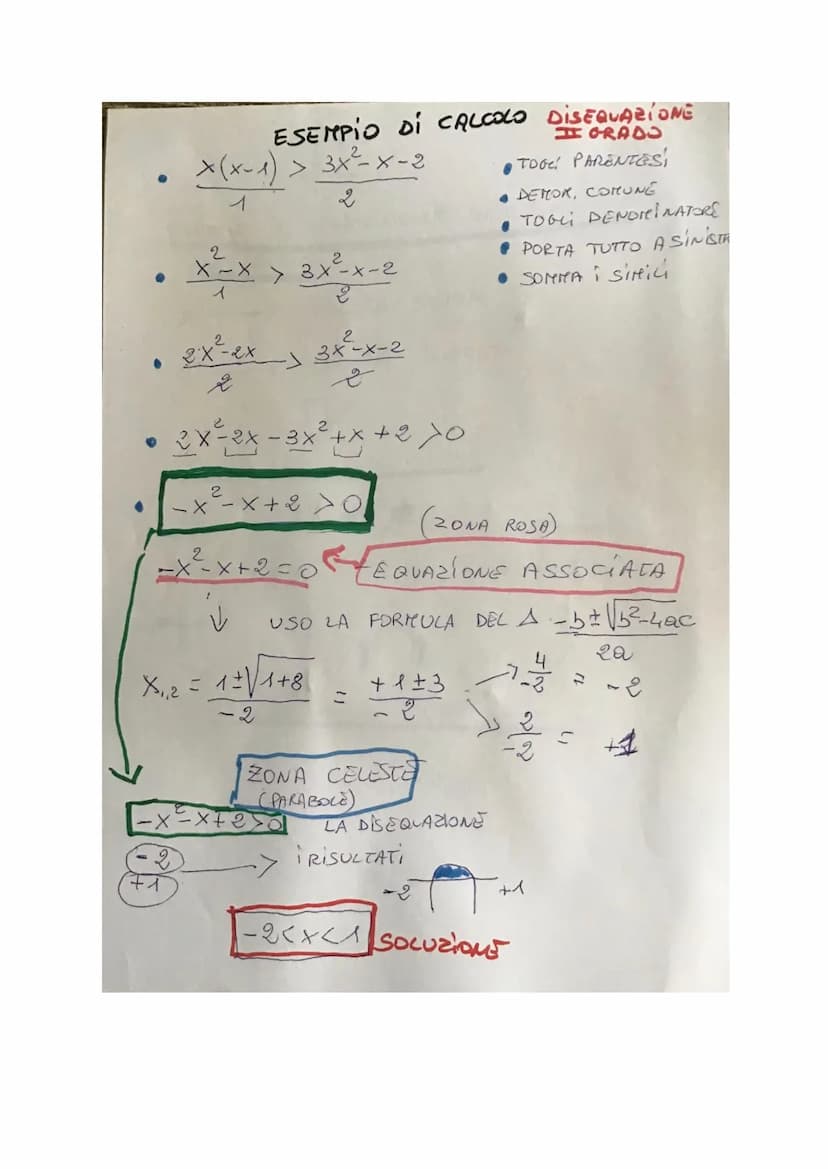 ESEMPIO DI CALCOLO DISEQUAZIONE
II GRADO
x(x-1)/1 > 3x²-x-2/2
• TOGLI PARENTESI
• DENOM. COMUNE
• TOGLI DENOMINATORE
• PORTA TUTTO A SINISTR
• SOMMA i SIMILI
x²-x/1 > 3x²-x-2/2
2x²-2x/2 > 3x²-x-2/2
2x²-2x-3x²+x+2>0
-x²-x+2>0
(ZONA ROSA)
-x²-x+2=0 ← EQUAZIONE ASSOCIATA
↓ USO LA FORMULA DEL Δ -b±√b²-4ac/2a
x1,2 = 1±√1+8/-2 = +1±3/-2 → 4/-2 = -2
↘ 2/-2 = +1
ZONA CELESTE
(PARABOLE)
-x²-x+2>0 LA DISEQUAZIONE
-2 → i RISULTATI
+1
-2 +1
-2<x<1 SOLUZIONE